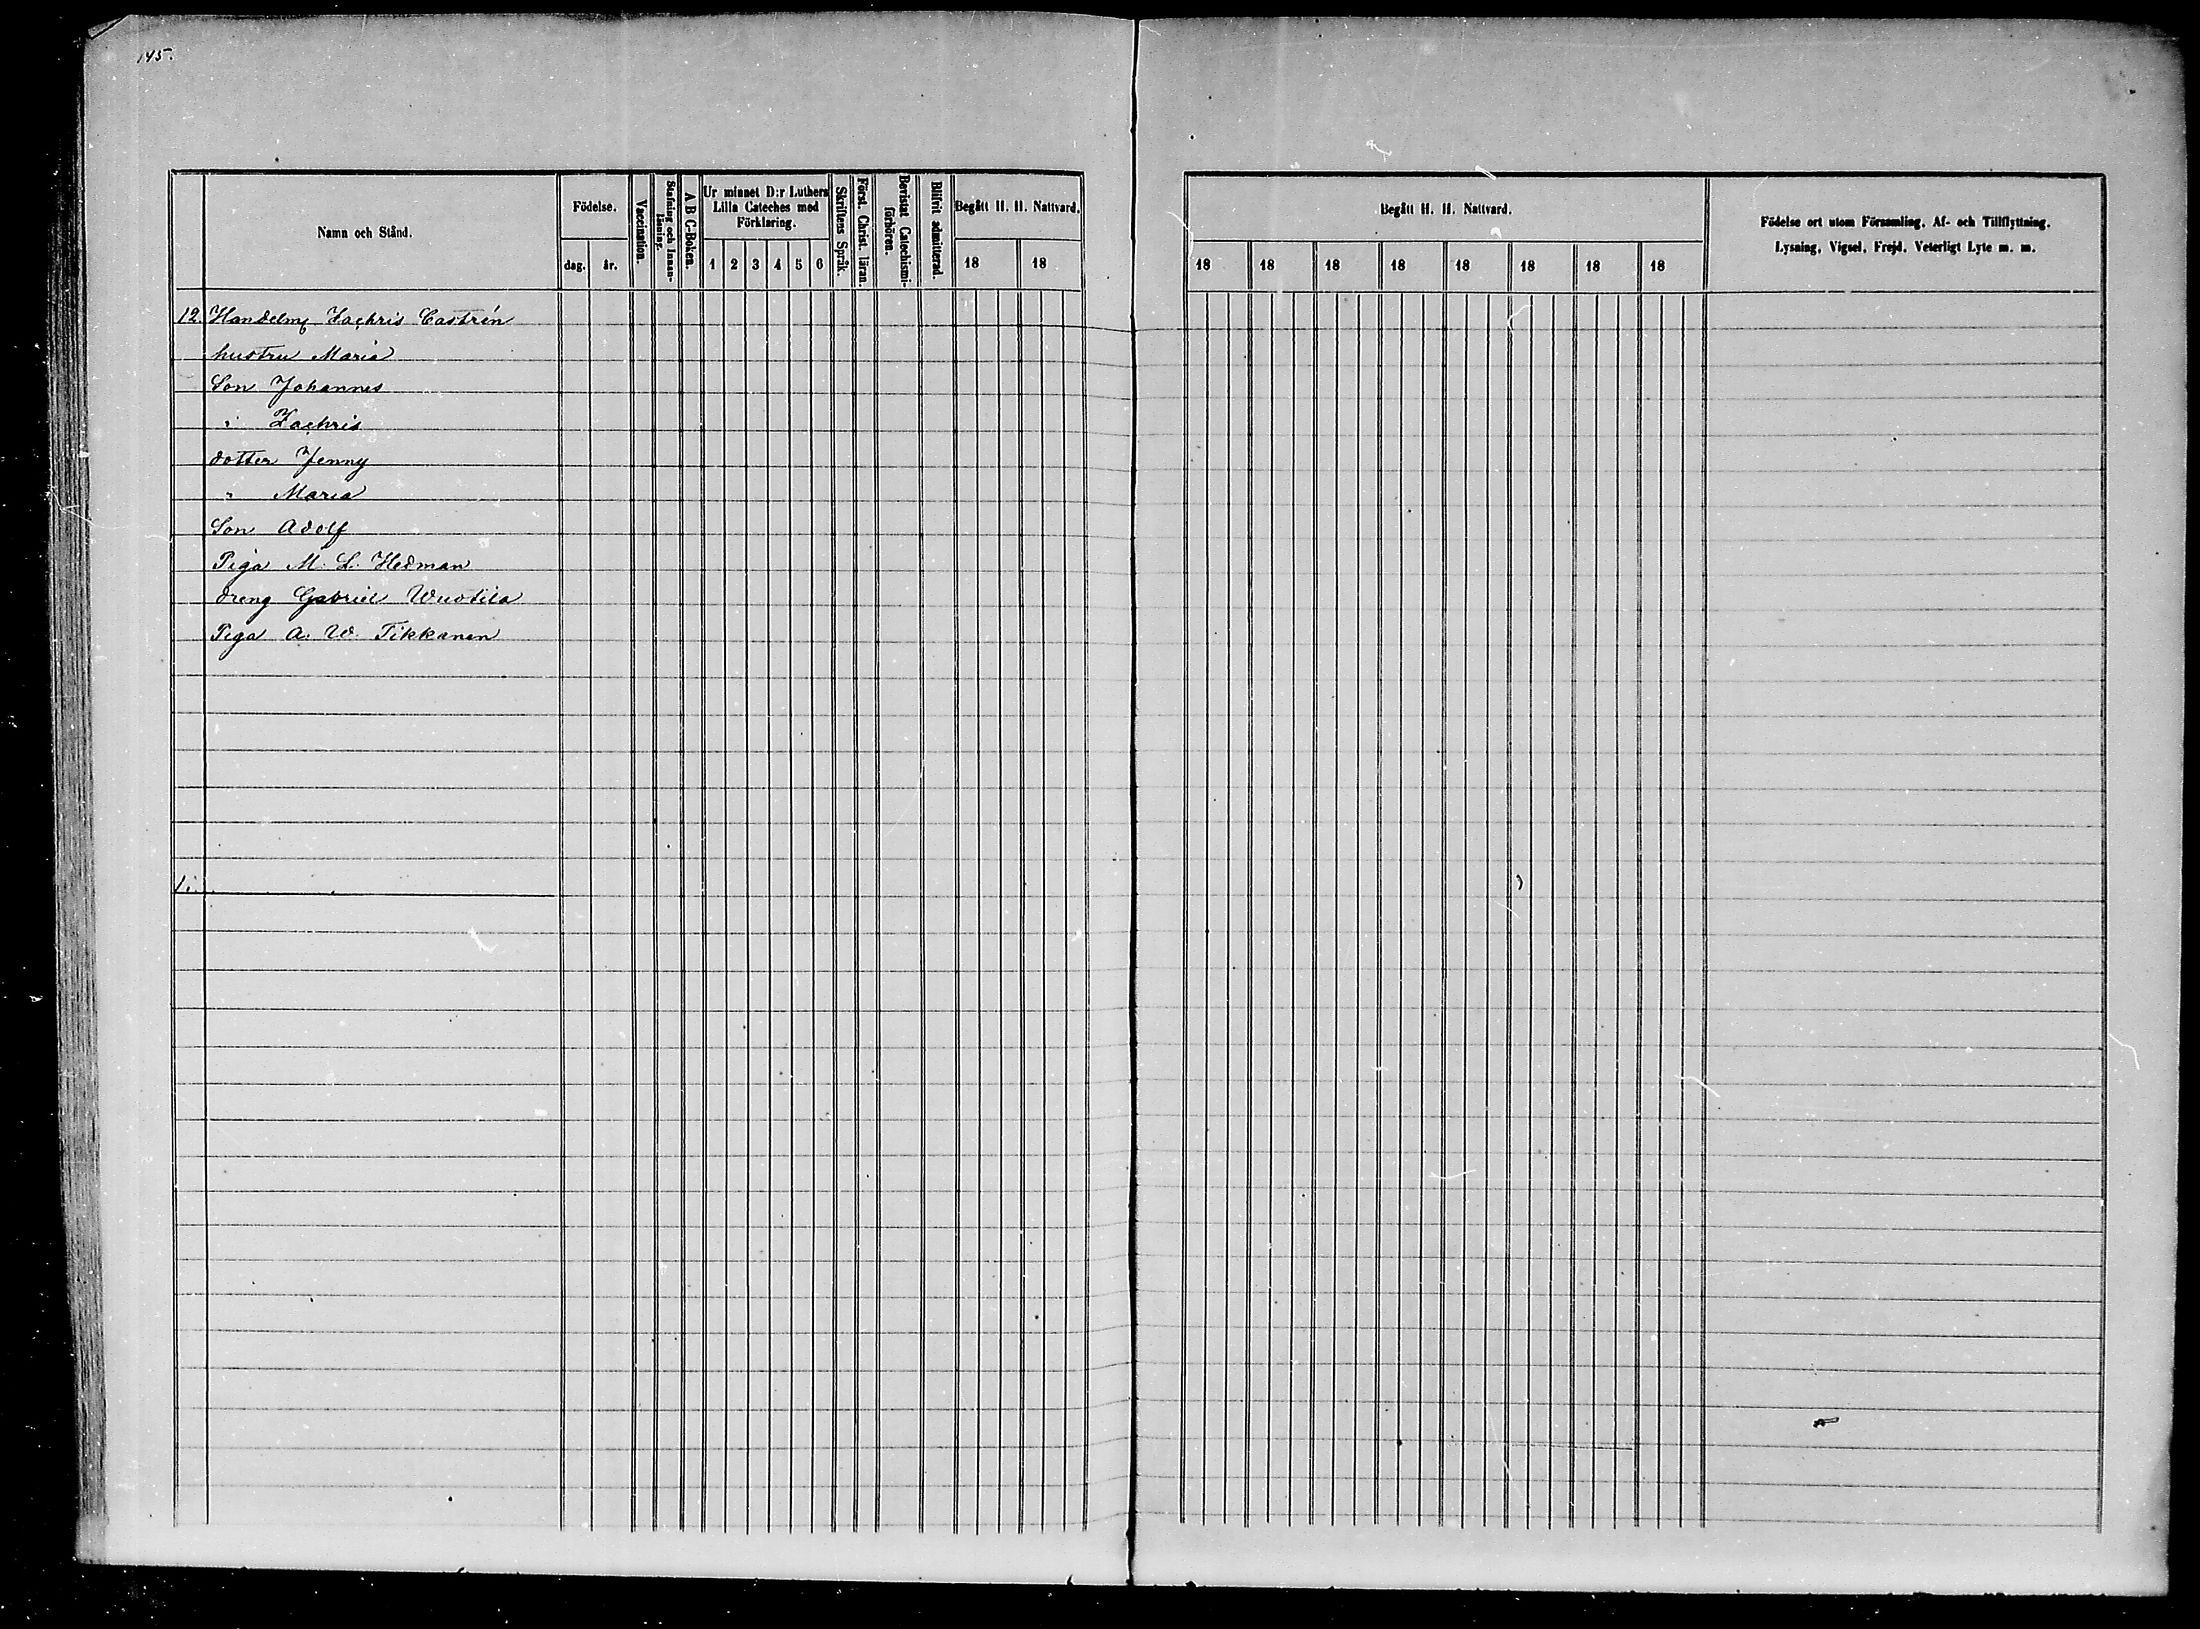 145.
Namn och Stånd.
Födelse.
dag.
år.
Vaccination.
Stafning och Innan-
läsning.
A B C-Boken.
Ur minnet D:r Luthers
Lilla Cateches med
Förklaring.
1 2 3 4 5 6
Skriftens Språk.
Först. Christ. läran.
Bevistat Catechismi-
förhören.
Blifvit admitterad.
Begått H. H. Nattvard.
18 18
Begått H. H. Nattvard.
18 18 18 18 18 18 18 18
Födelse ort utom Församling, Af- och Tillflyttning.
Lysning, Vigsel, Frejd, Veterligt Lyte m. m.
12. Handelm Zachris Castrén
hustru Maria
Son Johannes
" Zachris
dotter Jenny
" Maria
Son Adolf
Piga M. L. Hedman
dreng Gabriel Wuotila
Piga A. W. Tikkanen
1.